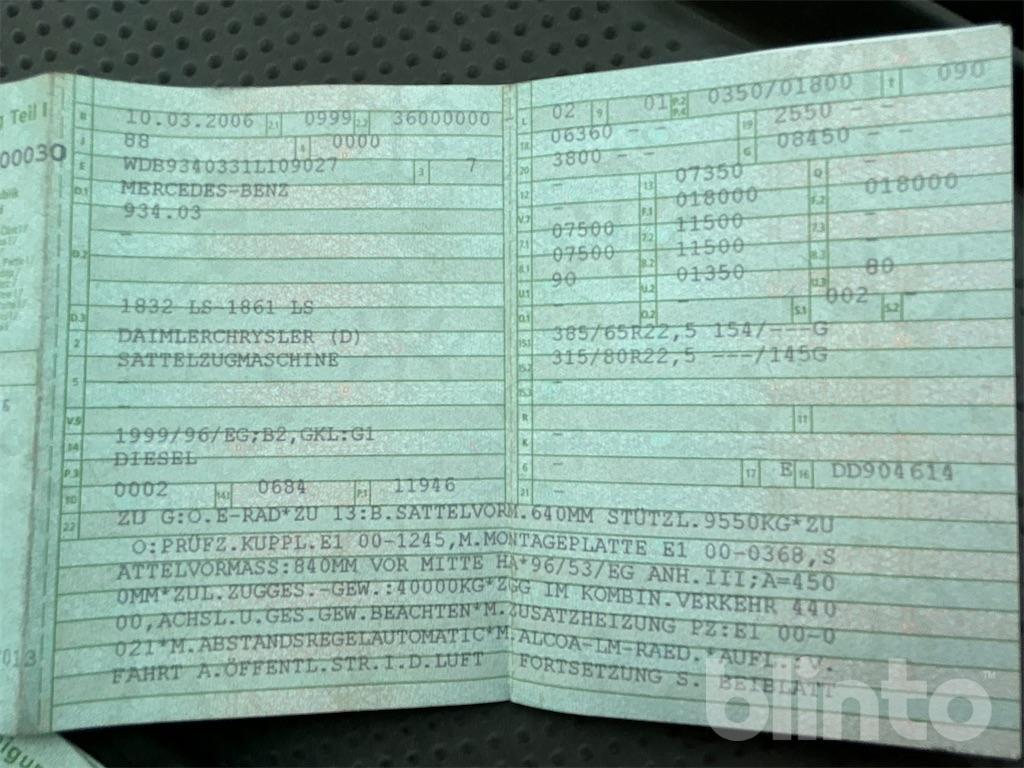 g Teil I
B 10.03.2006 2.1 0999 2.2 36000000
J 88 4 0000
E WDB9340331L109027 3 7
D.1 MERCEDES-BENZ
934.03
D.2 –
D.3 1832 LS-1861 LS
2 DAIMLERCHRYSLER (D)
5 SATTELZUGMASCHINE
–
V.9 –
14 1999/96/EG;B2,GKL:G1
P.3 DIESEL
10 0002 14.1 0684 P.1 11946
L 02 9 01 P.2 P.4 0350/01800 T 090
18 06360 – – 19 2550 –
20 3800 – – G 08450
12 – 13 07350 Q –
V.7 – F.1 018000 F.2 018000
7.1 07500 7.2 11500 7.3 –
8.1 07500 8.2 11500 8.3 –
U.1 90 U.2 01350 U.3 80
O.1 – O.2 – S.1 002 S.2 –
15.1 385/65R22,5 154/---G
15.2 315/80R22,5 ---/145G
15.3 –
R – 11
K –
6 – 17 E 16 DD904614
21 –
22 ZU G:O.E-RAD*ZU 13:B.SATTELVORM.640MM STÜTZL.9550KG*ZU
O:PRÜFZ.KUPPL.E1 00-1245,M.MONTAGEPLATTE E1 00-0368,S
ATTELVORMASS:840MM VOR MITTE HA*96/53/EG ANH.III;A=450
0MM*ZUL.ZUGGES.-GEW.:40000KG*ZGG IM KOMBIN.VERKEHR 440
00,ACHSL.U.GES.GEW.BEACHTEN*M.ZUSATZHEIZUNG PZ:E1 00-0
021*M.ABSTANDSREGELAUTOMATIC*M.ALCOA-LM-RAED.*AUFL.
FAHRT A.ÖFFENTL.STR.I.D.LUFT FORTSETZUNG S. BEIBLATT
blinto™